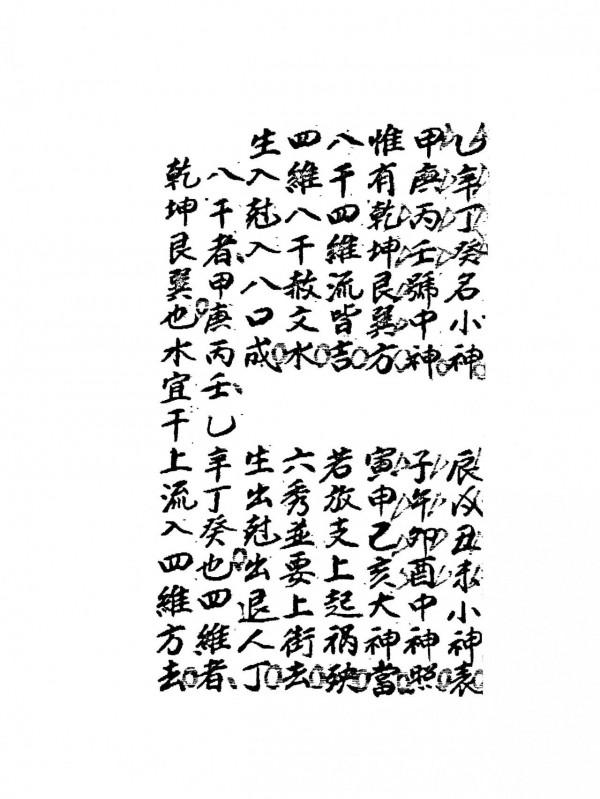 乙辛丁癸名小神 辰戌丑未小神表
甲庚丙壬號中神 子午卯酉中神照
惟有乾坤艮巽方 寅申己亥大神當
八干四維流皆吉 若放支上起禍殃
四維八干赦文水 六秀並要上街去
生入尅入八口成 生出尅出退人丁
八干者甲庚丙壬乙辛丁癸也四維者
乾坤艮巽也水宜干上流入四維方去